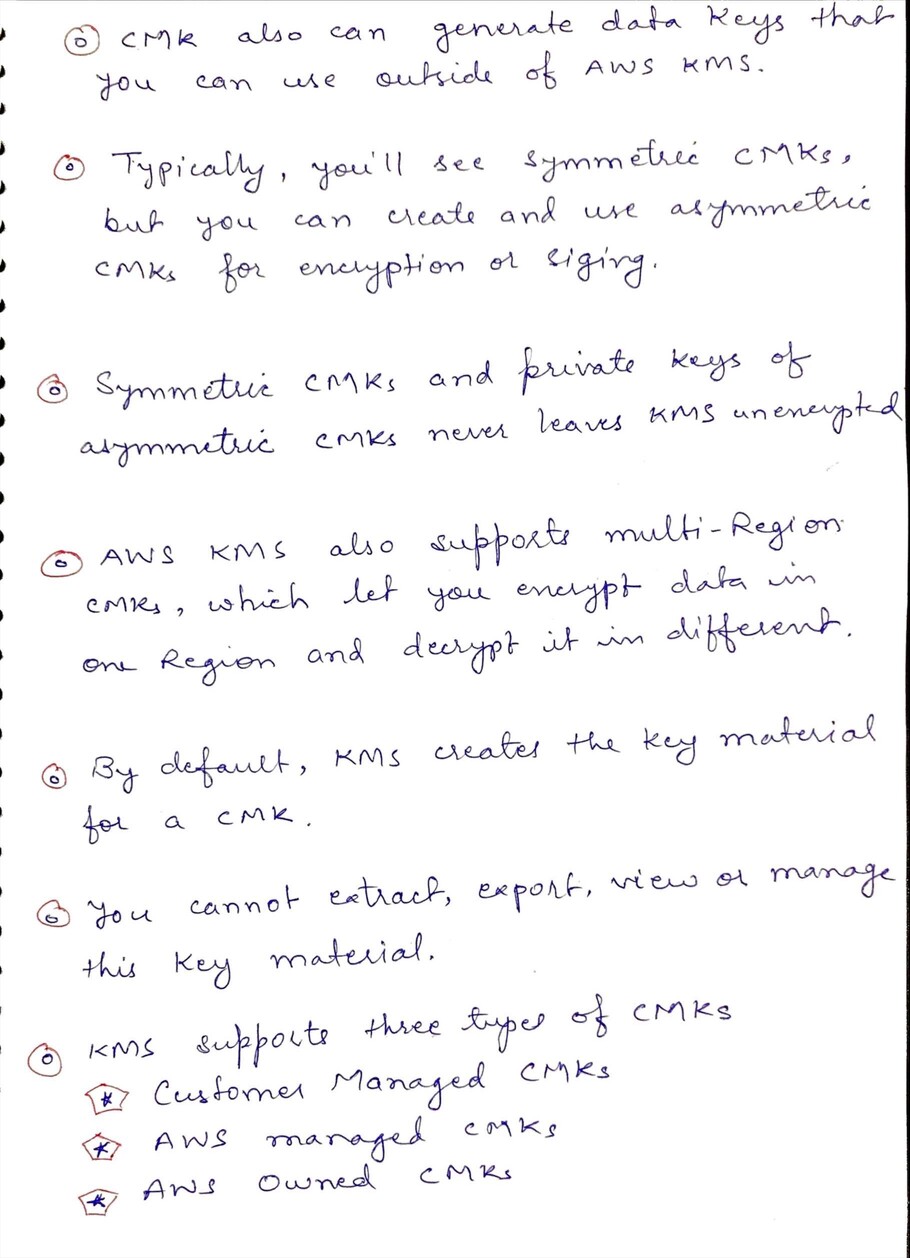 CMK also can generate data keys that
you can use outside of AWS KMS.
Typically, you'll see symmetric CMKs,
but you can create and use asymmetric
CMKs for encryption or siging.
Symmetric CMKs and private keys of
asymmetric CMKs never leaves KMS unencrypted
AWS KMS also supports multi-Region
CMKs, which let you encrypt data in
one Region and decrypt it in different.
By default, KMS creates the key material
for a CMK.
You cannot extract, export, view or manage
this key material.
KMS supports three types of CMKs
* Customer Managed CMKs
* AWS managed CMKs
* AWS Owned CMKs